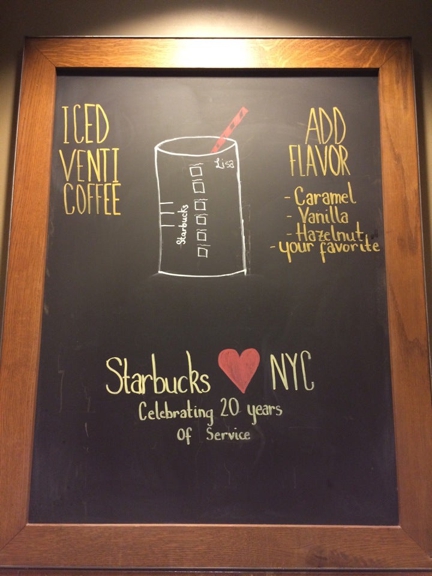 ICED
VENTI
COFFEE
Lisa
Starbucks
ADD
FLAVOR
- Caramel
- Vanilla
- Hazelnut
- your favorite
Starbucks ♥ NYC
Celebrating 20 years
Of Service